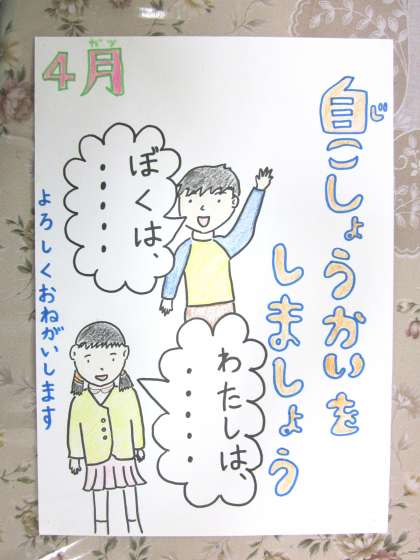 4月
ガツ
自こしょうかいを
じ
しましょう
ぼくは、
・・・・・
わたしは、
・・・・・
よろしくおねがいします